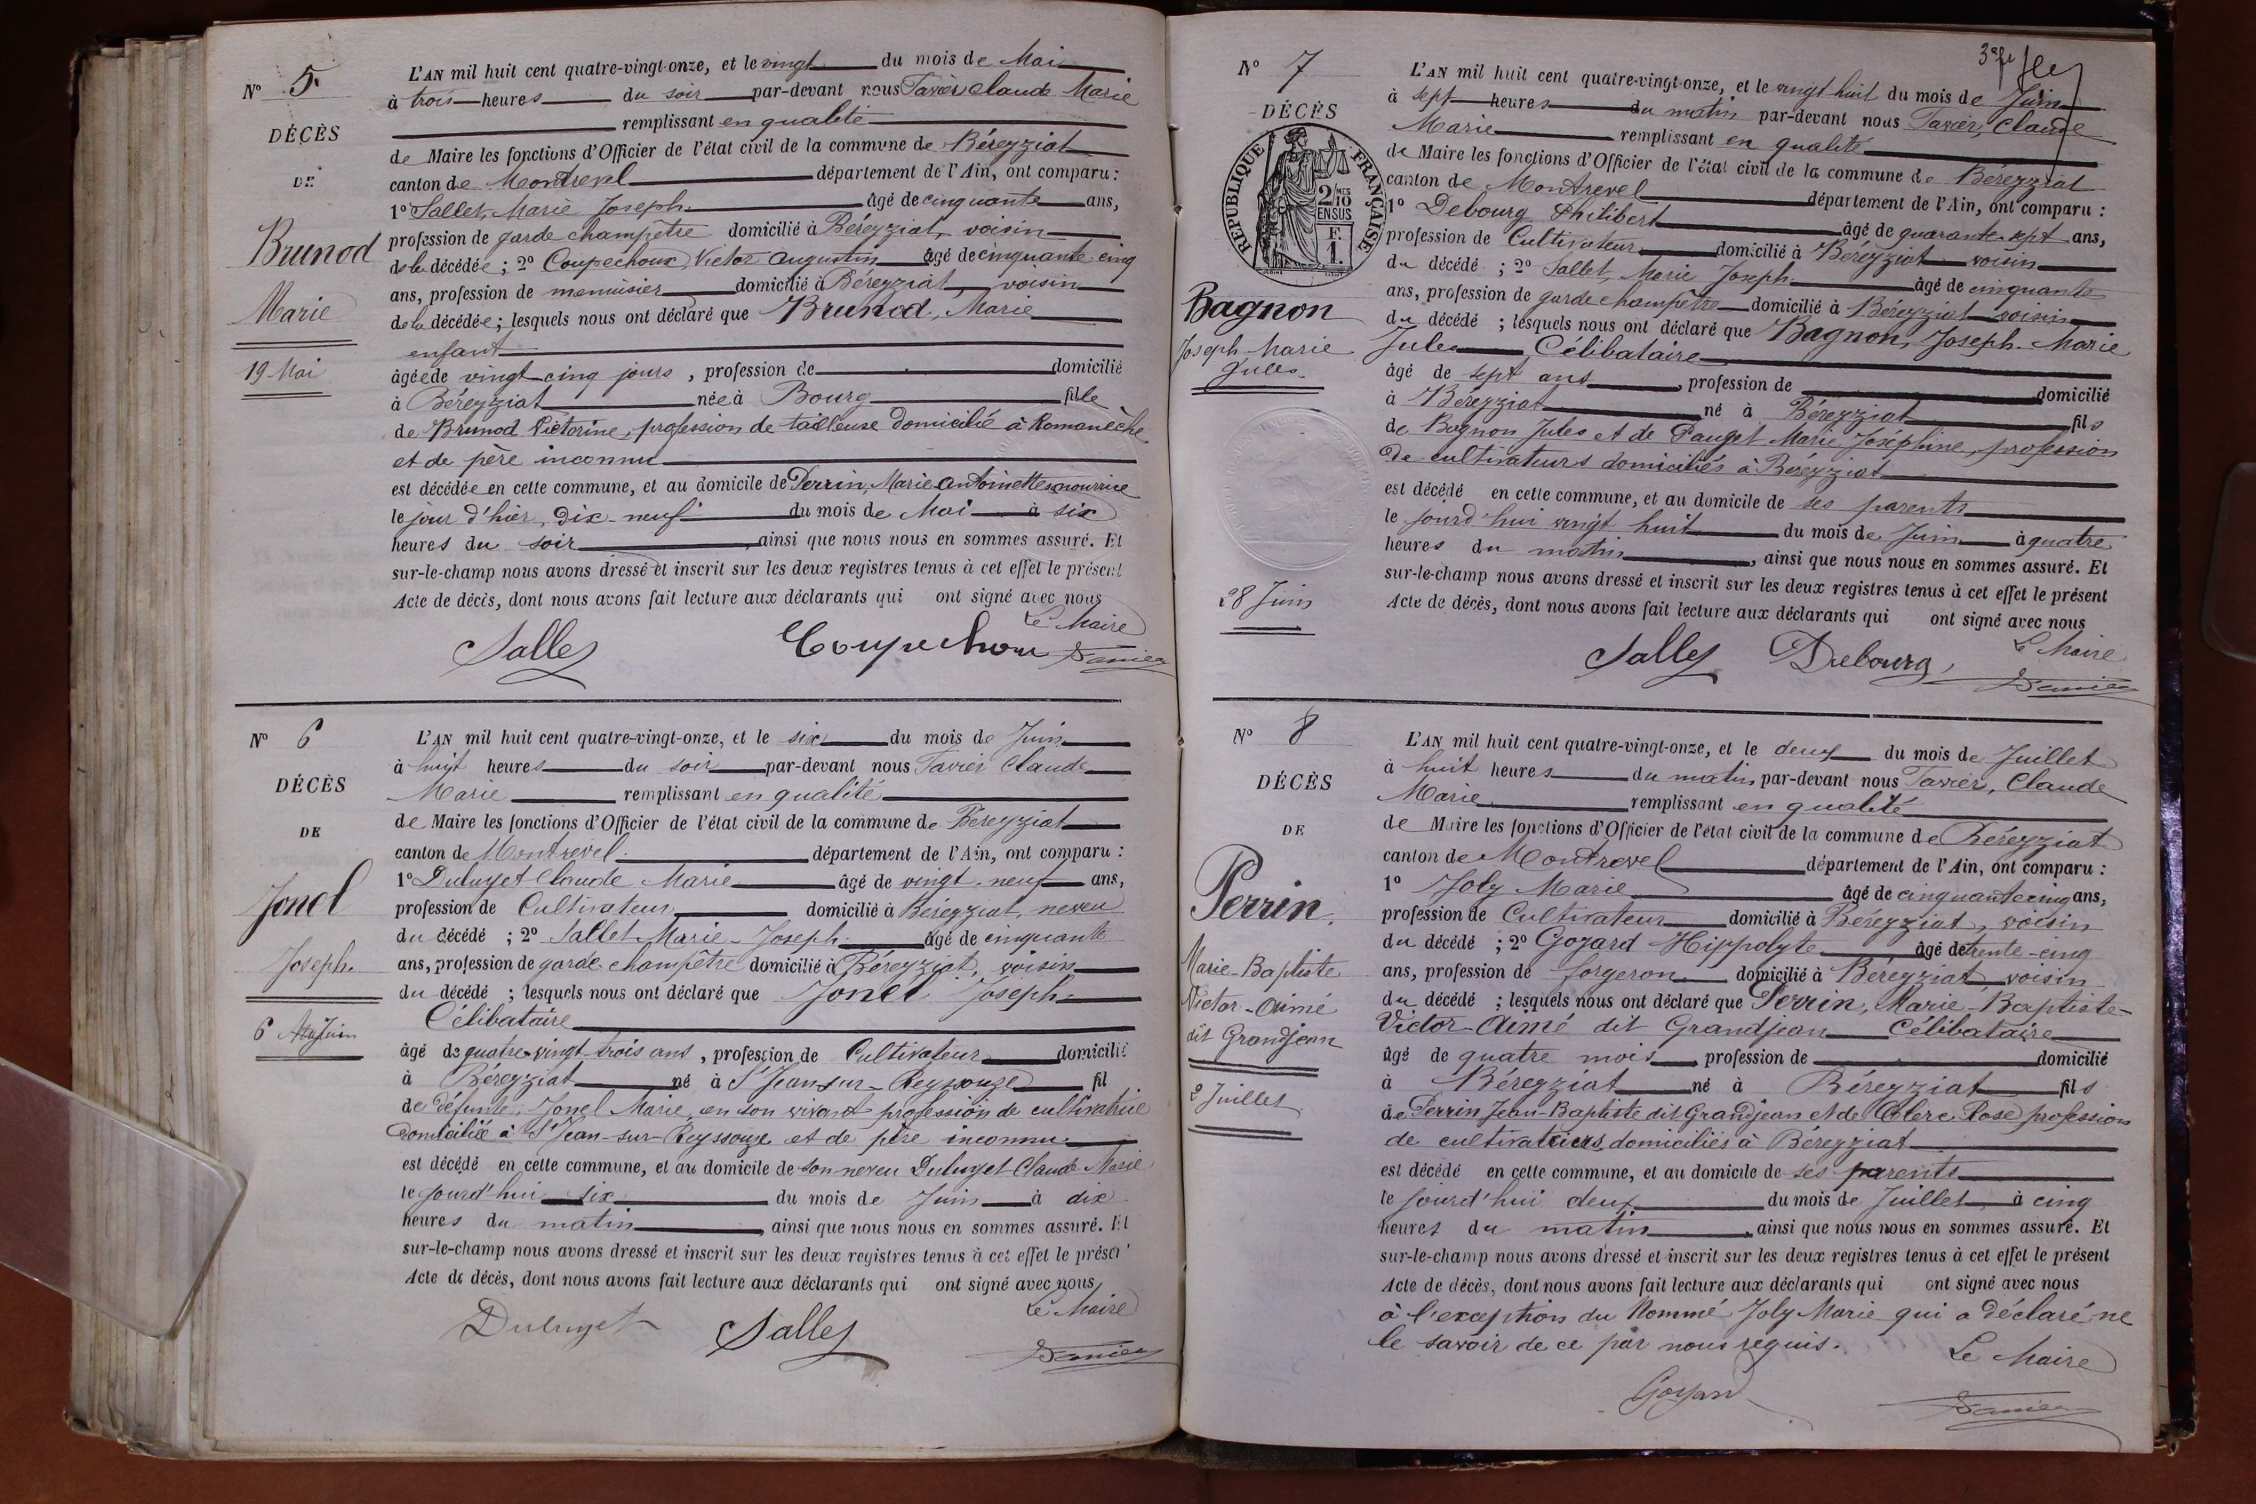 N° 5.
DÉCÈS
DE
Brunod
Marie
19 Mai
L'AN mil huit cent quatre-vingt-onze, et le vingt du mois de Mai
à trois heures du soir par-devant nous Tavier Claude Marie
remplissant en qualité
de Maire les fonctions d'Officier de l'état civil de la commune de Béreyziat
canton de Montrevel département de l'Ain, ont comparu :
1° Sallet, Marie Joseph âgé de cinquante ans,
profession de garde champêtre domicilié à Béreyziat, voisin
de la décédée ; 2° Coupechoux, Victor Augustin âgé de cinquante cinq
ans, profession de menuisier domicilié à Béreyziat, voisin
de la décédée ; lesquels nous ont déclaré que Brunod, Marie
enfant
âgée de vingt cinq jours, profession de domicilié
à Béreyziat née à Bourg fille
de Brunod Victorine, profession de tailleuse domicilié à Romanèche
et de père inconnu
est décédée en cette commune, et au domicile de Perrin, Marie Antoinette nourrice
le jour d'hier, dix-neuf du mois de Mai à six
heures du soir, ainsi que nous nous en sommes assuré. Et
sur-le-champ nous avons dressé et inscrit sur les deux registres tenus à cet effet le présent
Acte de décès, dont nous avons fait lecture aux déclarants qui ont signé avec nous
Le Maire
Sallet Coupechoux Tavier
N° 6
DÉCÈS
DE
Jonel
Joseph.
6 Juin
L'AN mil huit cent quatre-vingt-onze, et le six du mois de Juin
à huit heures du soir par-devant nous Tavier Claude
Marie remplissant en qualité
de Maire les fonctions d'Officier de l'état civil de la commune de Béreyziat
canton de Montrevel département de l'Ain, ont comparu :
1° Duluyet Claude Marie âgé de vingt-neuf ans,
profession de Cultivateur domicilié à Béreyziat, neveu
du décédé ; 2° Sallet Marie-Joseph âgé de cinquante
ans, profession de garde champêtre domicilié à Béreyziat, voisin
du décédé ; lesquels nous ont déclaré que Jonel Joseph
Célibataire
âgé de quatre-vingt-trois ans, profession de Cultivateur domicilié
à Béreyziat né à St Jean-sur-Reyssouze fil
de défunte, Jonel Marie, en son vivant profession de cultivatrice
domiciliée à St Jean-sur-Reyssouze et de père inconnu
est décédé en cette commune, et au domicile de son neveu Duluyet Claude Marie
le jourd'hui six du mois de Juin à dix
heures du matin, ainsi que nous nous en sommes assuré. Et
sur-le-champ nous avons dressé et inscrit sur les deux registres tenus à cet effet le présent
Acte de décès, dont nous avons fait lecture aux déclarants qui ont signé avec nous
Le Maire
Duluyet Sallet Tavier
N° 7
DÉCÈS
RÉPUBLIQUE FRANÇAISE
2 MES
10
EN SUS
F.
1.
Bagnon
Joseph Marie
Jules
28 Juin
L'AN mil huit cent quatre-vingt-onze, et le vingt huit du mois de Juin
à sept heures du matin par-devant nous Tavier, Claude
Marie remplissant en qualité
de Maire les fonctions d'Officier de l'état civil de la commune de Béreyziat
canton de Montrevel département de l'Ain, ont comparu :
1° Debourg Philibert âgé de quarante-sept ans,
profession de Cultivateur domicilié à Béreyziat voisin
du décédé ; 2° Sallet, Marie Joseph âgé de cinquante
ans, profession de garde champêtre domicilié à Béreyziat voisin
du décédé ; lesquels nous ont déclaré que Bagnon, Joseph-Marie
Jules Célibataire
âgé de sept ans, profession de domicilié
à Béreyziat né à Béreyziat fils
de Bagnon Jules et de Pauget Marie Joséphine, profession
de cultivateurs domiciliés à Béreyziat
est décédé en cette commune, et au domicile de ses parents
le jourd'hui vingt huit du mois de Juin à quatre
heures du matin, ainsi que nous nous en sommes assuré. Et
sur-le-champ nous avons dressé et inscrit sur les deux registres tenus à cet effet le présent
Acte de décès, dont nous avons fait lecture aux déclarants qui ont signé avec nous
Le Maire
Sallet Debourg Tavier
N° 8
DÉCÈS
DE
Perrin.
Marie-Baptiste
Victor-Aimé
dit Grandjean
2 Juillet
L'AN mil huit cent quatre-vingt-onze, et le deux du mois de Juillet
à huit heures du matin par-devant nous Tavier, Claude
Marie remplissant en qualité
de Maire les fonctions d'Officier de l'état civil de la commune de Béreyziat
canton de Montrevel département de l'Ain, ont comparu :
1° Joly Marie âgé de cinquante cinq ans,
profession de Cultivateur domicilié à Béreyziat, voisin
du décédé ; 2° Goyard Hippolyte âgé de trente-cinq
ans, profession de forgeron domicilié à Béreyziat voisin
du décédé ; lesquels nous ont déclaré que Perrin, Marie-Baptiste-
Victor-Aimé dit Grandjean Célibataire
âgé de quatre mois, profession de domicilié
à Béreyziat né à Béreyziat fils
de Perrin Jean-Baptiste dit Grandjean et de Clerc Rose profession
de cultivateurs domiciliés à Béreyziat
est décédé en cette commune, et au domicile de ses parents
le jourd'hui deux du mois de Juillet à cinq
heures du matin, ainsi que nous nous en sommes assuré. Et
sur-le-champ nous avons dressé et inscrit sur les deux registres tenus à cet effet le présent
Acte de décès, dont nous avons fait lecture aux déclarants qui ont signé avec nous
à l'exception du Nommé Joly Marie qui a déclaré ne
le savoir de ce par nous requis.
Le Maire
Goyard Tavier